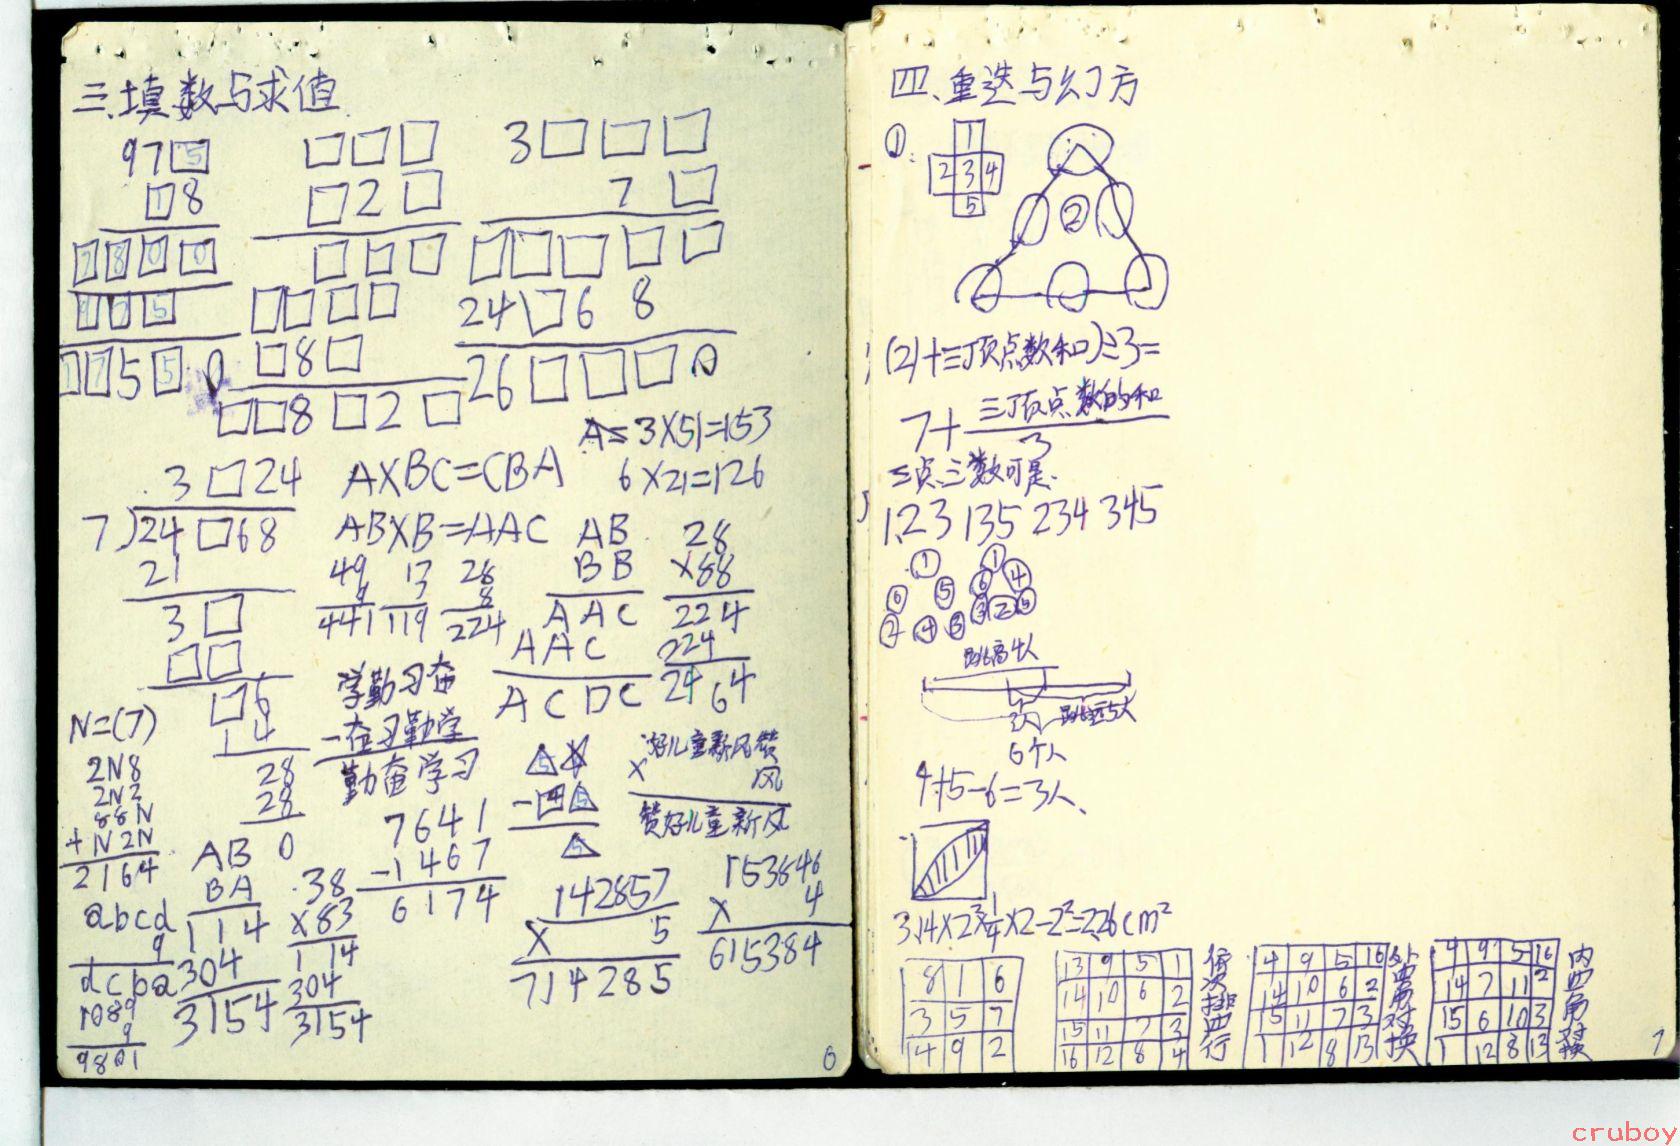 三、填数与求值
97□5
□1 8
□7□8□0□0
□9□7□5
□1□7 5 □5 0
□□□
□2□
□□□
□□□□
□8□
□□8□2□
3□□□
7□
□□□□□
24□6 8
26□□□0
3□24
7)24□68
21
3□
□□
□6
14
28
28
0
A×BC=CBA
A= 3×51=153
6×21=126
AB×B=AAC
49
9
441
17
7
119
28
8
224
AB
BB
AAC
AAC
ACDC
28
×88
224
224
2464
学勤习奋
-奋习勤学
勤奋学习
7641
-1467
6174
N=(7)
2N8
2N2
88N
+N2N
2164
AB
BA
114
304
3154
38
×83
114
304
3154
abcd
9
dcba
1089
9
9801
好儿童新风赞
× 风
赞好儿童新风
142857
× 5
714285
153846
× 4
615384
6
四、重迭与幻方
①.
1
2 3 4
5
②
(21+三顶点数和)÷3=
7+三顶点数的和
3
三点三数可是.
1,2,3 135 234 345
跳高4人
跳远5人
6个人
4+5-6=3人、
3.14×2²×1/4×2-2²=2.26cm²
8 1 6
3 5 7
4 9 2
13 9 5 1
14 10 6 2
15 11 7 3
16 12 8 4
依次排四行
4 9 5 16
14 10 6 2
15 11 7 3
1 12 8 13
外四角对换
4 9 5 16
14 7 11 2
15 6 10 3
1 12 8 13
内四角对换
7
cruboy